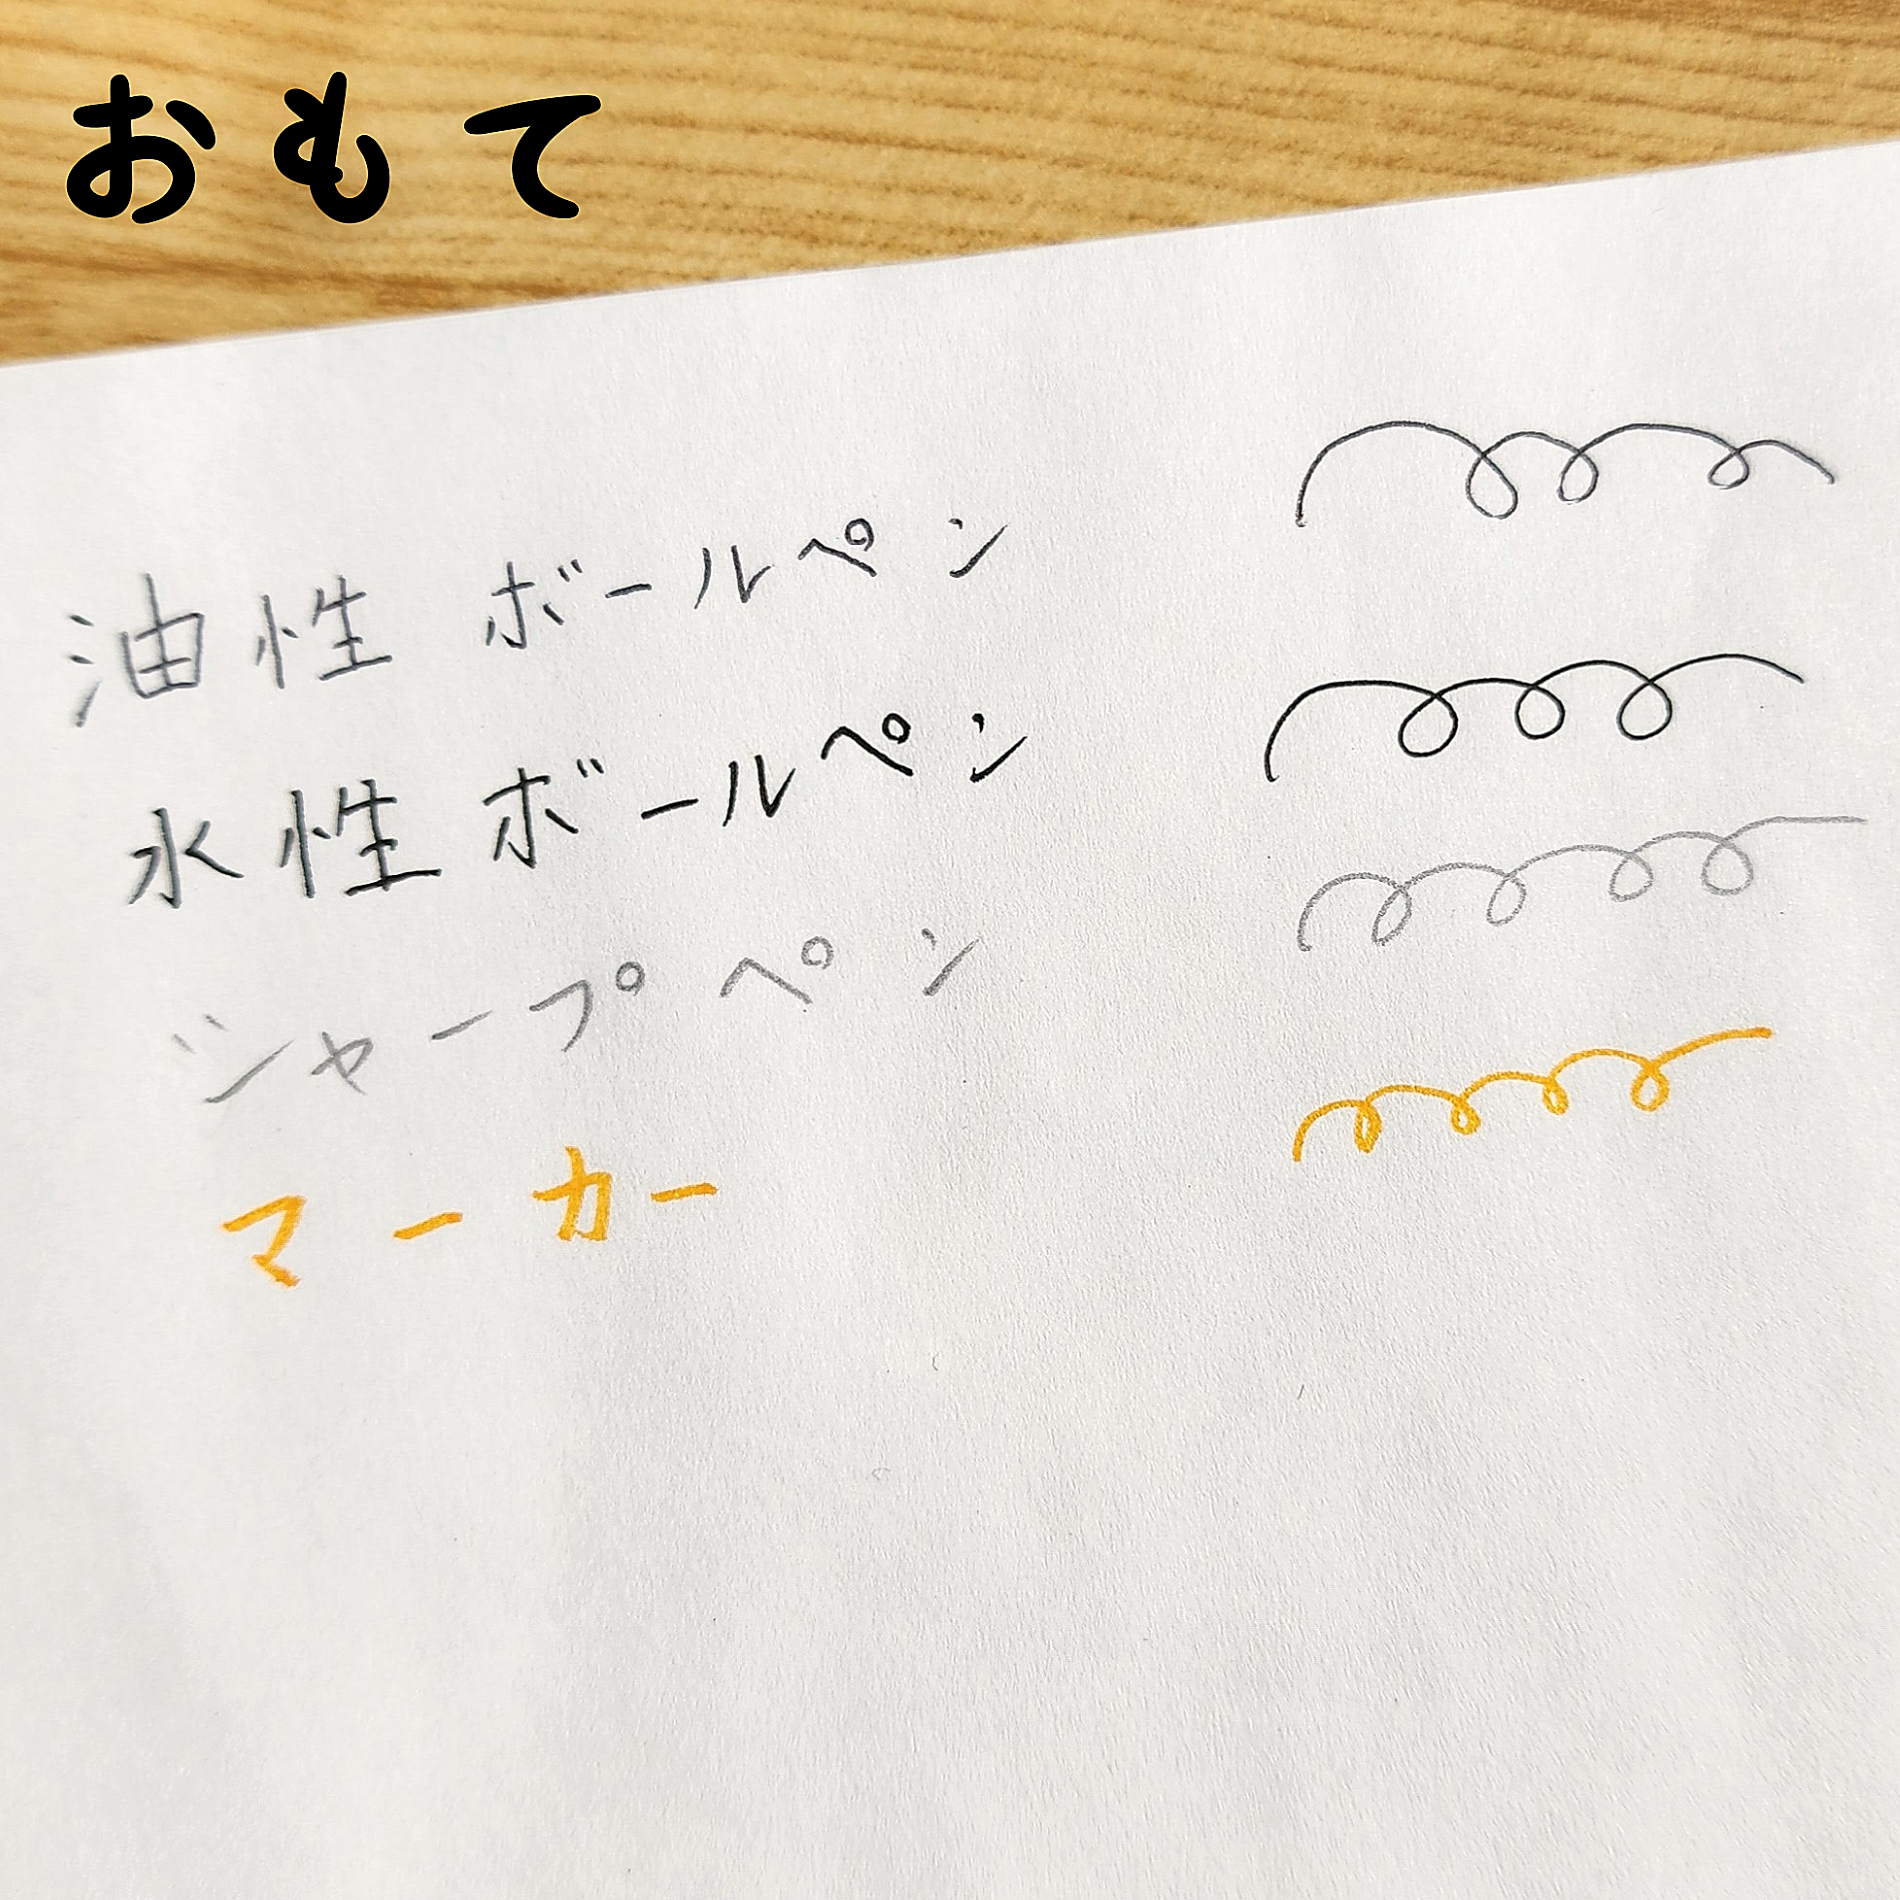 おもて
油性ボールペン
水性ボールペン
シャープペン
マーカー